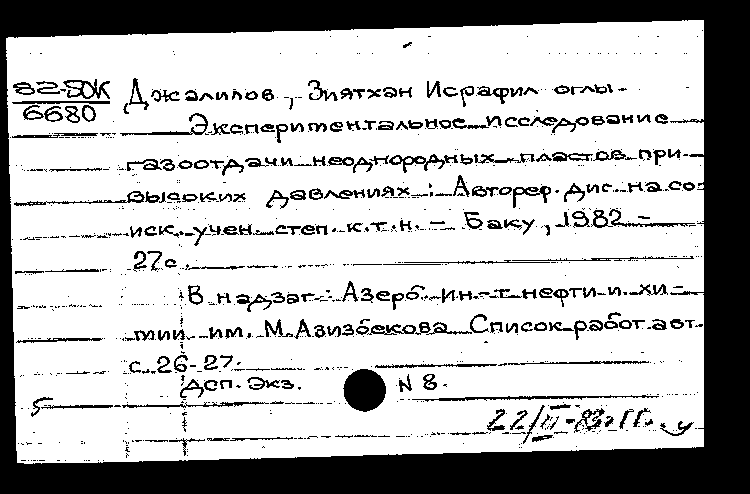 82-5ОК
6680
Джалилов, Зиятхан Исрафил оглы.
Экспериментальное исследование
газоотдачи неоднородных пластов при
высоких давлениях : Автореф. дис. на со-
иск. учен. степ. к.т.н. – Баку, 1982 –
27с.
В надзаг.: Азерб. ин-т нефти и хи-
мии им. М.Азизбекова Список работ авт.
с. 26-27.
Дсп. Экз. N 8.
5
22/III-83г